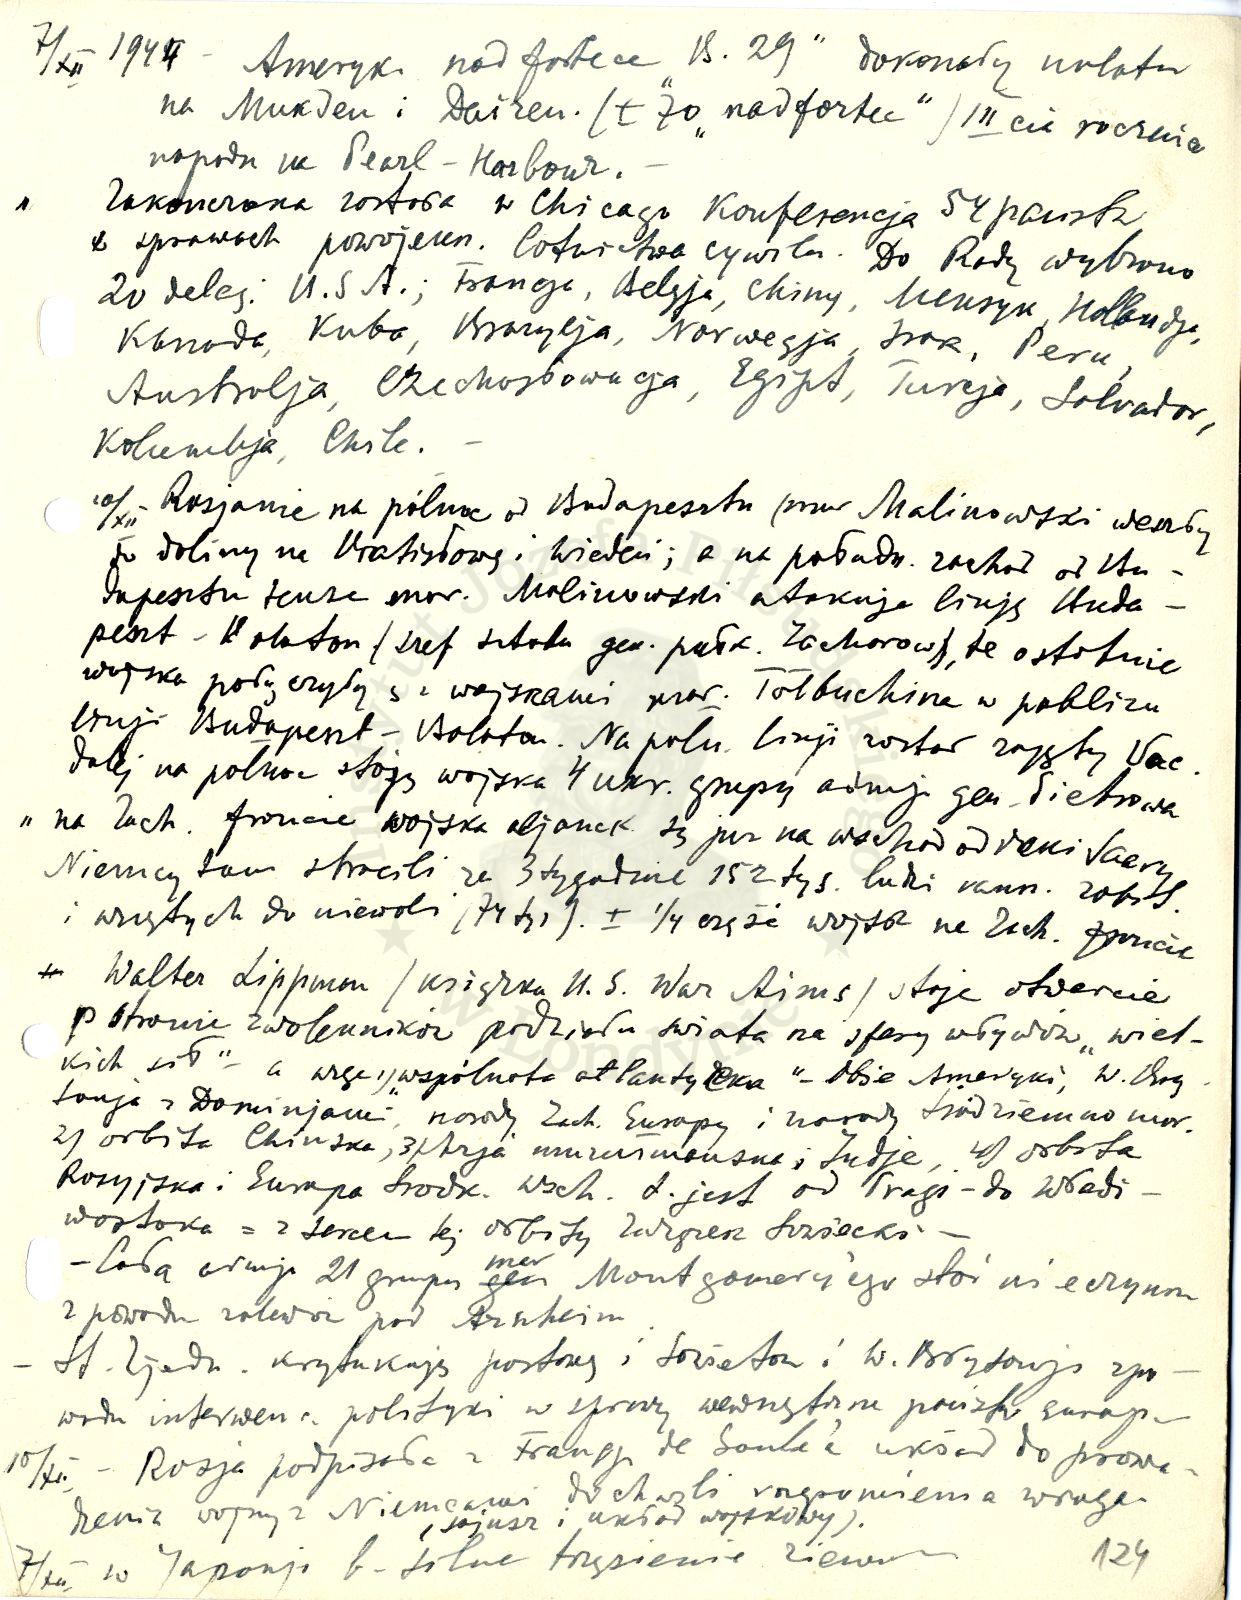 7/XII 1944 - Ameryk. nadfortece „B. 29" dokonały nalotu
na Mukden i Dairen. (± 70 „nadfortec") III cia rocznica
napadu na Pearl-Harbour. -
" Zakończona została w Chicago Konferencja 54 państw
w sprawach powojenn. lotnictwa cywiln. Do Rady wybrano
20 deleg. U.S.A.; Francja, Belgja, Chiny, Meksyk, Hollandja,
Kanada, Kuba, Brazylja, Norwegja, Irak, Peru,
Australja, Czechosłowacja, Egipt, Turcja, Salvador,
Kolumbja, Chile. -
10/XII - Rosjanie na północ od Budapesztu (mar Malinowski weszły
do doliny na Bratisławę i Wiedeń; a na połudn. zachód od Bu-
dapesztu tenże mar. Malinowski atakuje linję Buda-
peszt - Balaton (szef sztabu gen. pułk. Zacharow), te ostatnie
wojska połączyły się z wojskami mar. Tołbuchina w pobliżu
linji Budapeszt - Balaton. Na półn. linji został zajęty Vac.
dalej na północ stoją wojska 4 ukr. grupy armji gen. Pietrowa
" na Zach. froncie wojska aljanck. są już na wschód od rzeki Saary
Niemcy tam stracili za 3 tygodnie 152 tys. ludzi rann. zabit.
i wziętych do niewoli (74 tys). ± 1/4 część wojsk na Zach. froncie
Walter Lippman (książka U.S. War Aims) staje otwarcie
po stronie zwolenników podziału świata na sfery wpływów „wiel-
kich sił" - a więc 1) „wspólnota atlantycka" - obie Ameryki, W. Bry
tanja z Dominjami, narody Zach. Europy i narody śródziemnomor.
2) orbita Chińska, 3) Azja muzułmańska i Indje, 4) orbita
Rosyjska i Europa Środk. Wsch. t. jest od Pragi - do Władi-
wostoka = z sercem tej orbity Związek Sowiecki -
- Cała armja 21 grupy gen mar Montgomery'ego stoi nieczynn
z powodu zalewów pod Arnheim.
- St. Zjedn. krytykują postawę i Sowietów i W. Brytanji z po-
wodu interwenc. polityki w sprawy wewnętrzne państw europ.
10/XII. - Rosja podpisała z Francją de Gaulle'a układ do prowa-
dzenia wojny z Niemcami do chwili rozgromienia wroga.
(sojusz i układ wojskowy).
7/XII. w Japonji b. silne trzęsienie ziemi
124